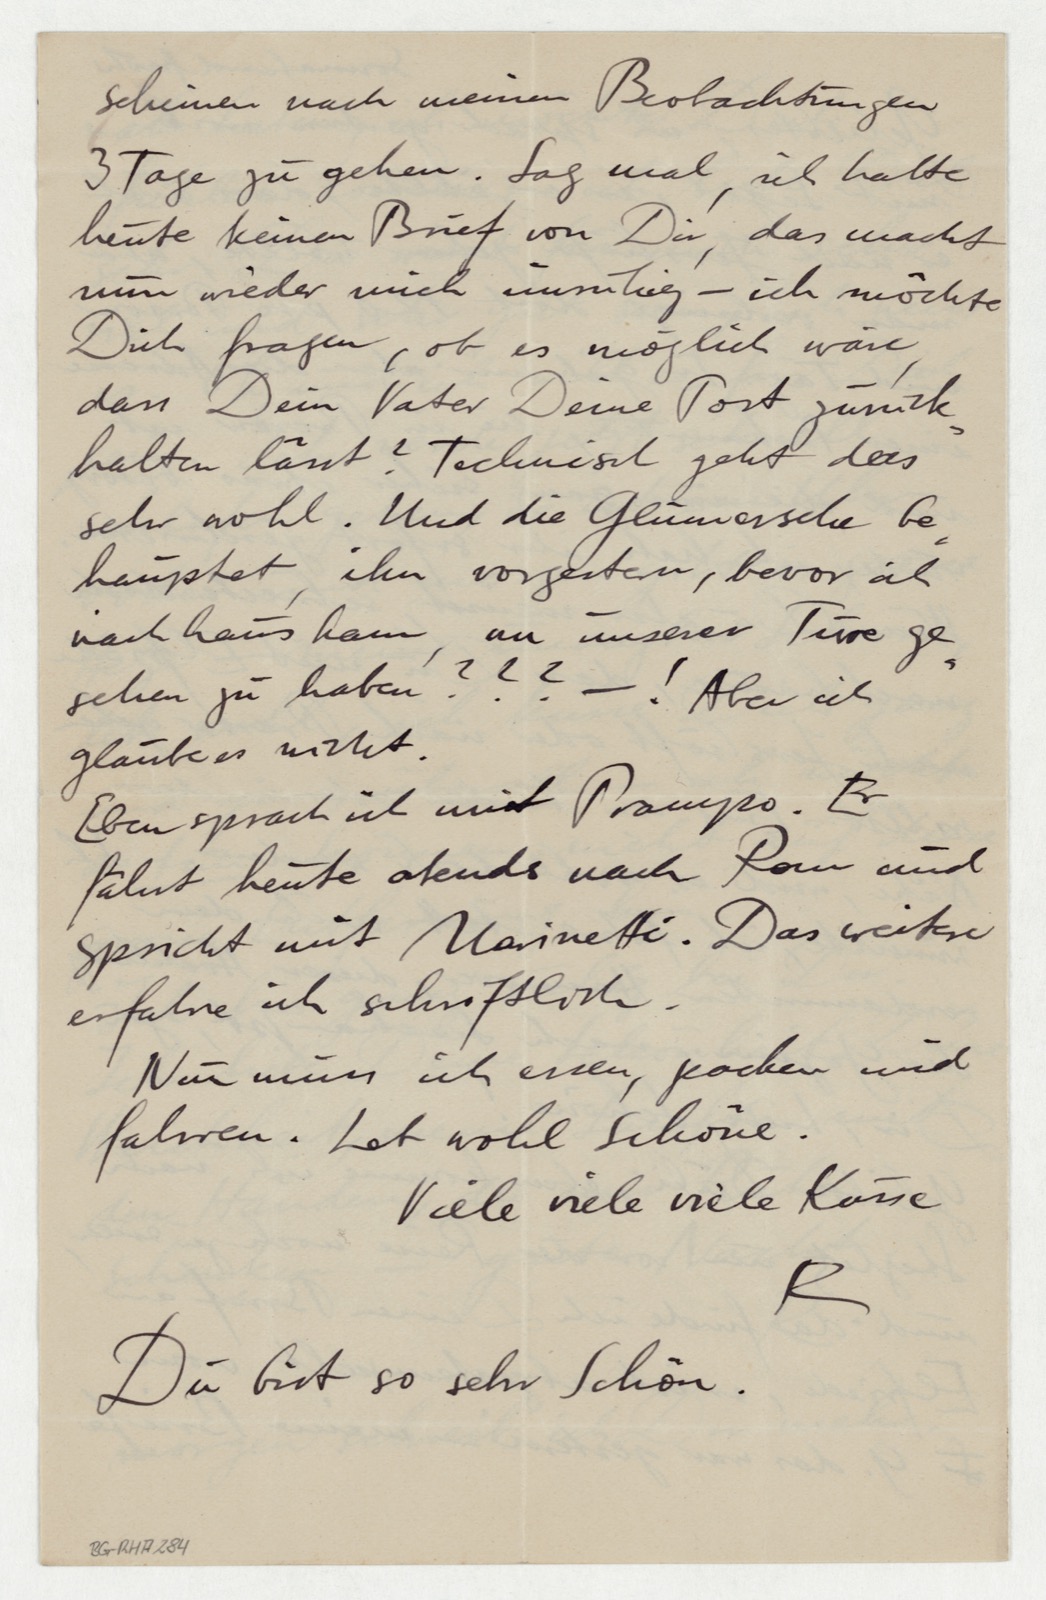 scheinen nach meinen Beobachtungen
3 Tage zu gehen. Sag mal, ich hatte
heute keinen Brief von Dir, das macht
nun wieder mich unruhig – ich möchte
Dich fragen, ob es möglich wäre,
dass Dein Vater Deine Post zurück-
halten lässt? Technisch geht das
sehr wohl. Und die Glümersche be-
hauptet, ihn vorgestern, bevor ich
nachhaus kam, an unserer Türe ge-
sehen zu haben ??? – ! Aber ich
glaube es nicht.
Eben sprach ich mit Prampo. Er
fährt heute abends nach Rom und
spricht mit Marinetti. Das weitere
erfahre ich schriftlich.
Nun muss ich essen, packen und
fahren. Leb wohl Schöne.
Viele viele viele Küsse
R
Du bist so sehr Schön.
BG-RHA 284